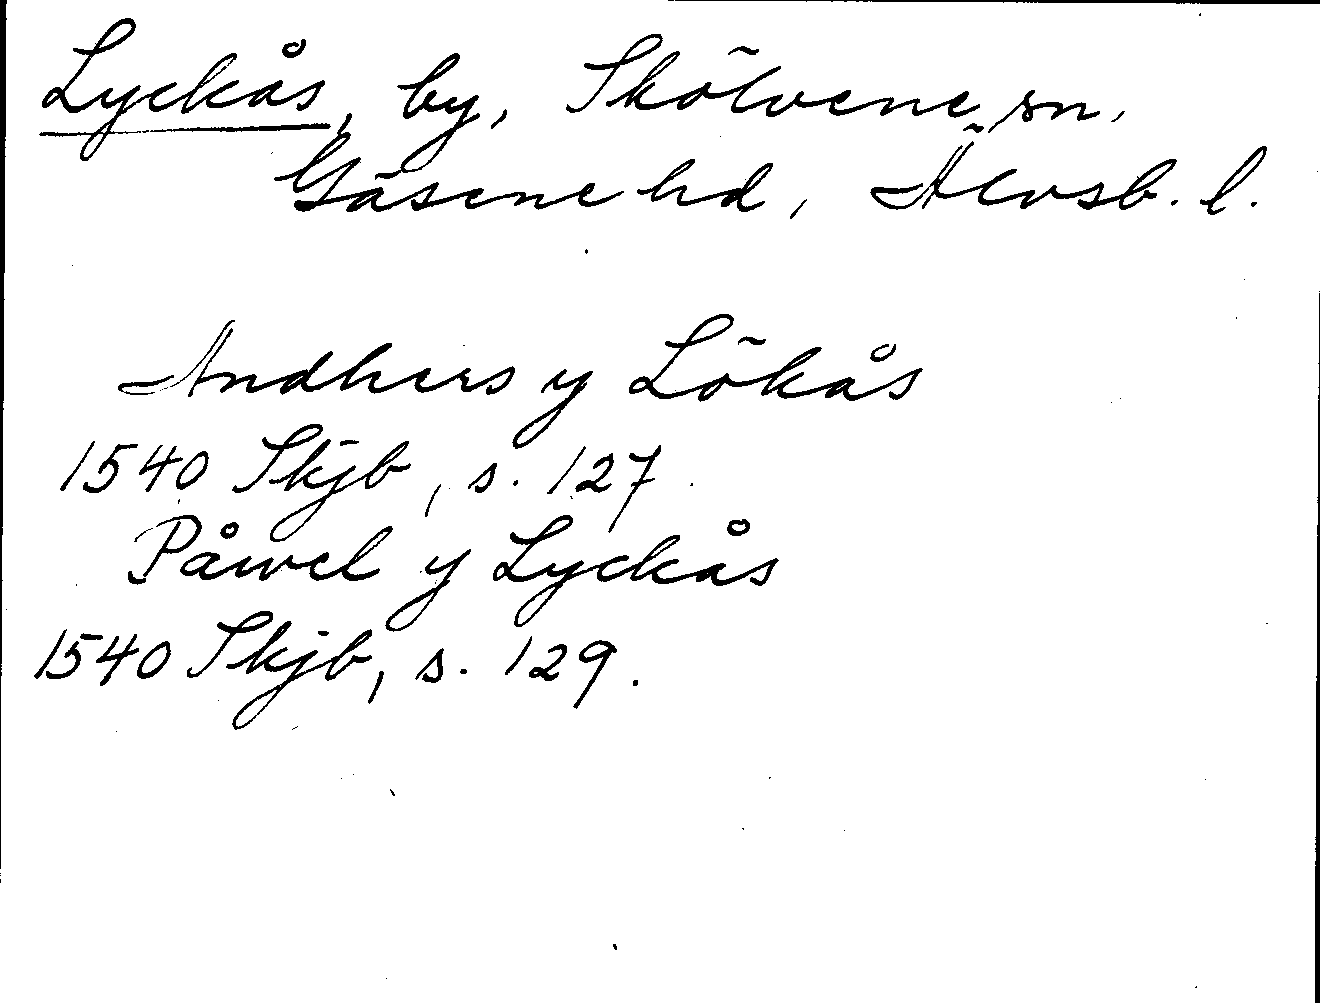 Lyckås, by, Skölvene sn.
Gäsene hd, Älvsb. l.
Andhers y Lökås
1540 Skjb, s. 127.
Påwel y Lyckås
1540 Skjb, s. 129.